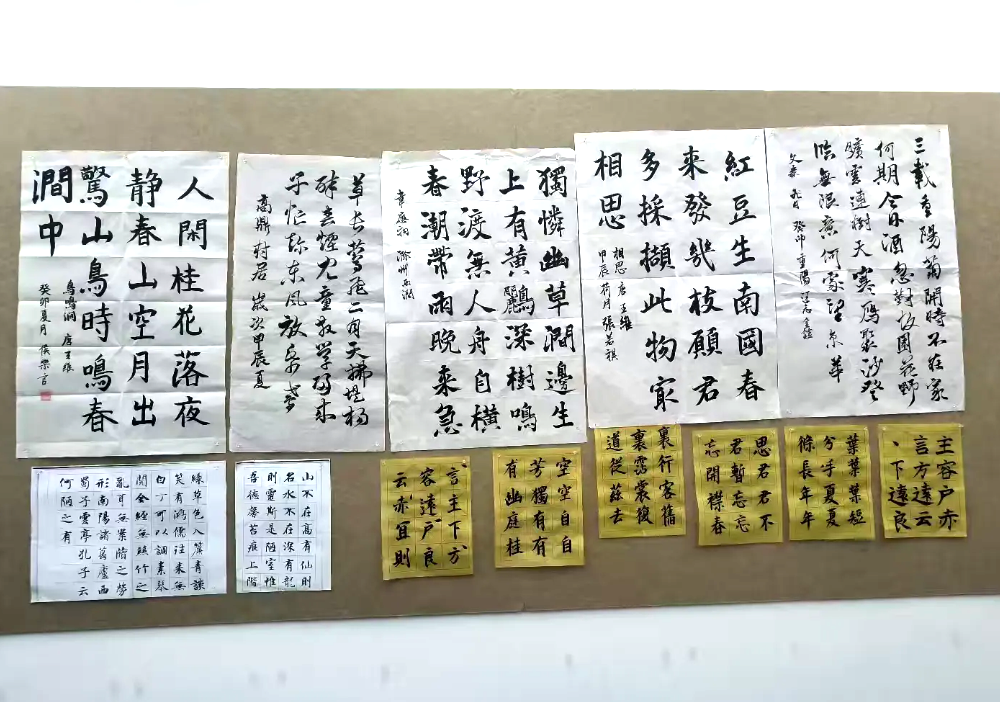 三載重陽菊開時不在家
何期今日酒忽對故園花野
曠雲連樹天寒雁聚沙登
臨無限意何處望京華
文森 九日 癸卯重陽
紅豆生南國春
來發幾枝願君
多採擷此物寂
相思
相思 唐 王維
甲辰荷月 張若祺
獨憐幽草澗邊生
上有黃鸝深樹鳴
野渡無人舟自橫
春潮帶雨晚來急
韋應物 滁州西澗
草長鶯飛二月天拂堤楊
柳醉春煙兒童散學歸來
忙趁東風放紙鳶
高鼎 村居 歲次甲辰夏
人閑桂花落夜
静春山空月出
驚山鳥時鳴春
澗中
鳥鳴澗 唐 王維
癸卯夏月
主容户赤
言方遠云
丶下遠良
葉葉葉短
兮手夏夏
條長年年
思君君不
君暫忘忘
忘開襟春
裏行客舊
裏露裳復
道從茲去
空空自自
芳獨有有
有幽庭桂
言主下方
容遠户良
云赤宜則
山不在高有仙則
名水不在深有龍
則靈斯是陋室惟
吾德馨苔痕上階
綠草色入簾青談
笑有鴻儒往來無
白丁可以調素琴
閱金經無絲竹之
亂耳無案牘之勞
形南陽諸葛廬西
蜀子雲亭孔子云
何陋之有